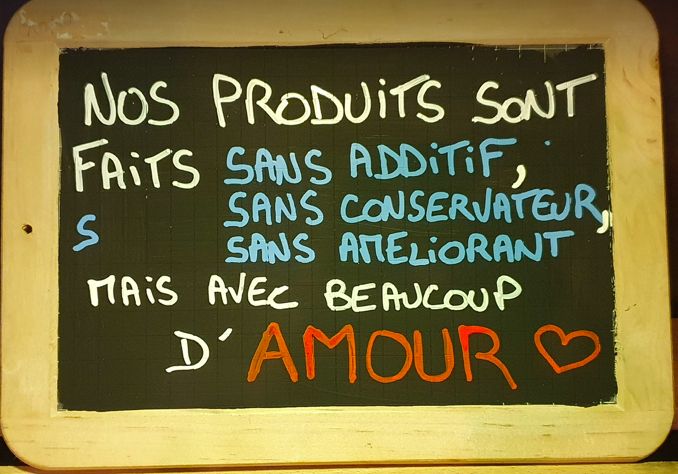 NOS PRODUITS SONT
FAITS SANS ADDITIF,
SANS CONSERVATEUR,
S SANS AMELIORANT
MAIS AVEC BEAUCOUP
D'AMOUR